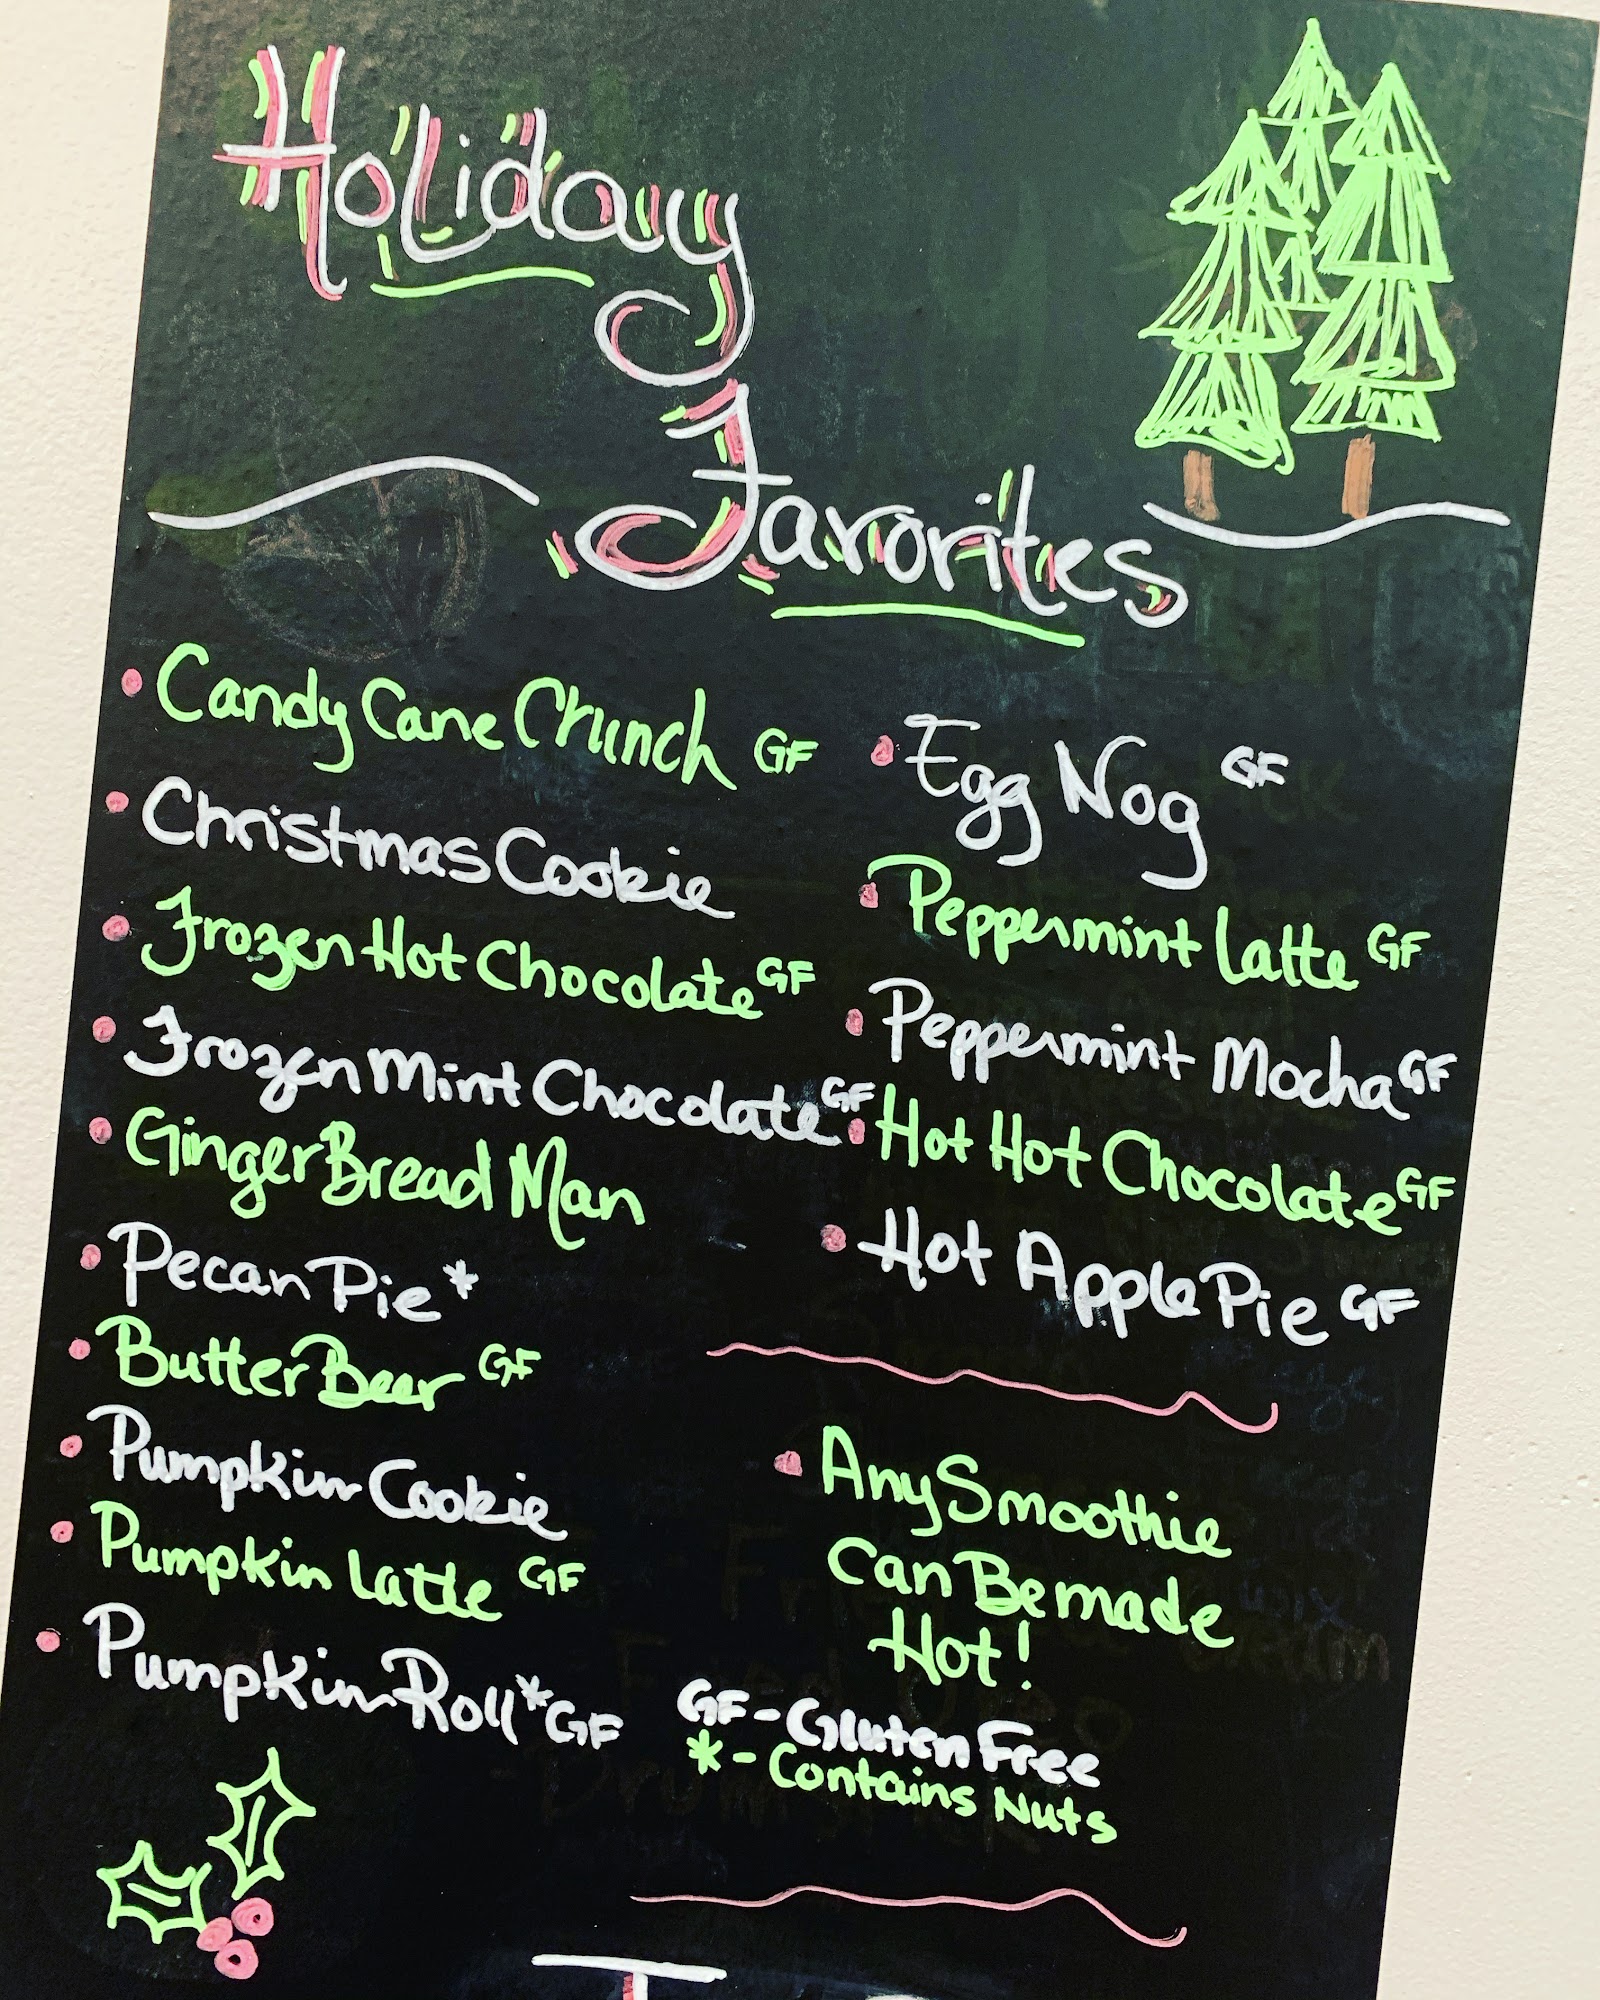 Holiday
Favorites
Candy Cane Crunch GF
Christmas Cookie
Frozen Hot Chocolate GF
Frozen Mint Chocolate GF
GingerBread Man
Pecan Pie*
Butter Beer GF
Pumpkin Cookie
Pumpkin Latte GF
Pumpkin Roll* GF
Egg Nog GF
Peppermint Latte GF
Peppermint Mocha GF
Hot Hot Chocolate GF
Hot Apple Pie GF
Any Smoothie
Can Be made
Hot!
GF - Gluten Free
* - Contains Nuts